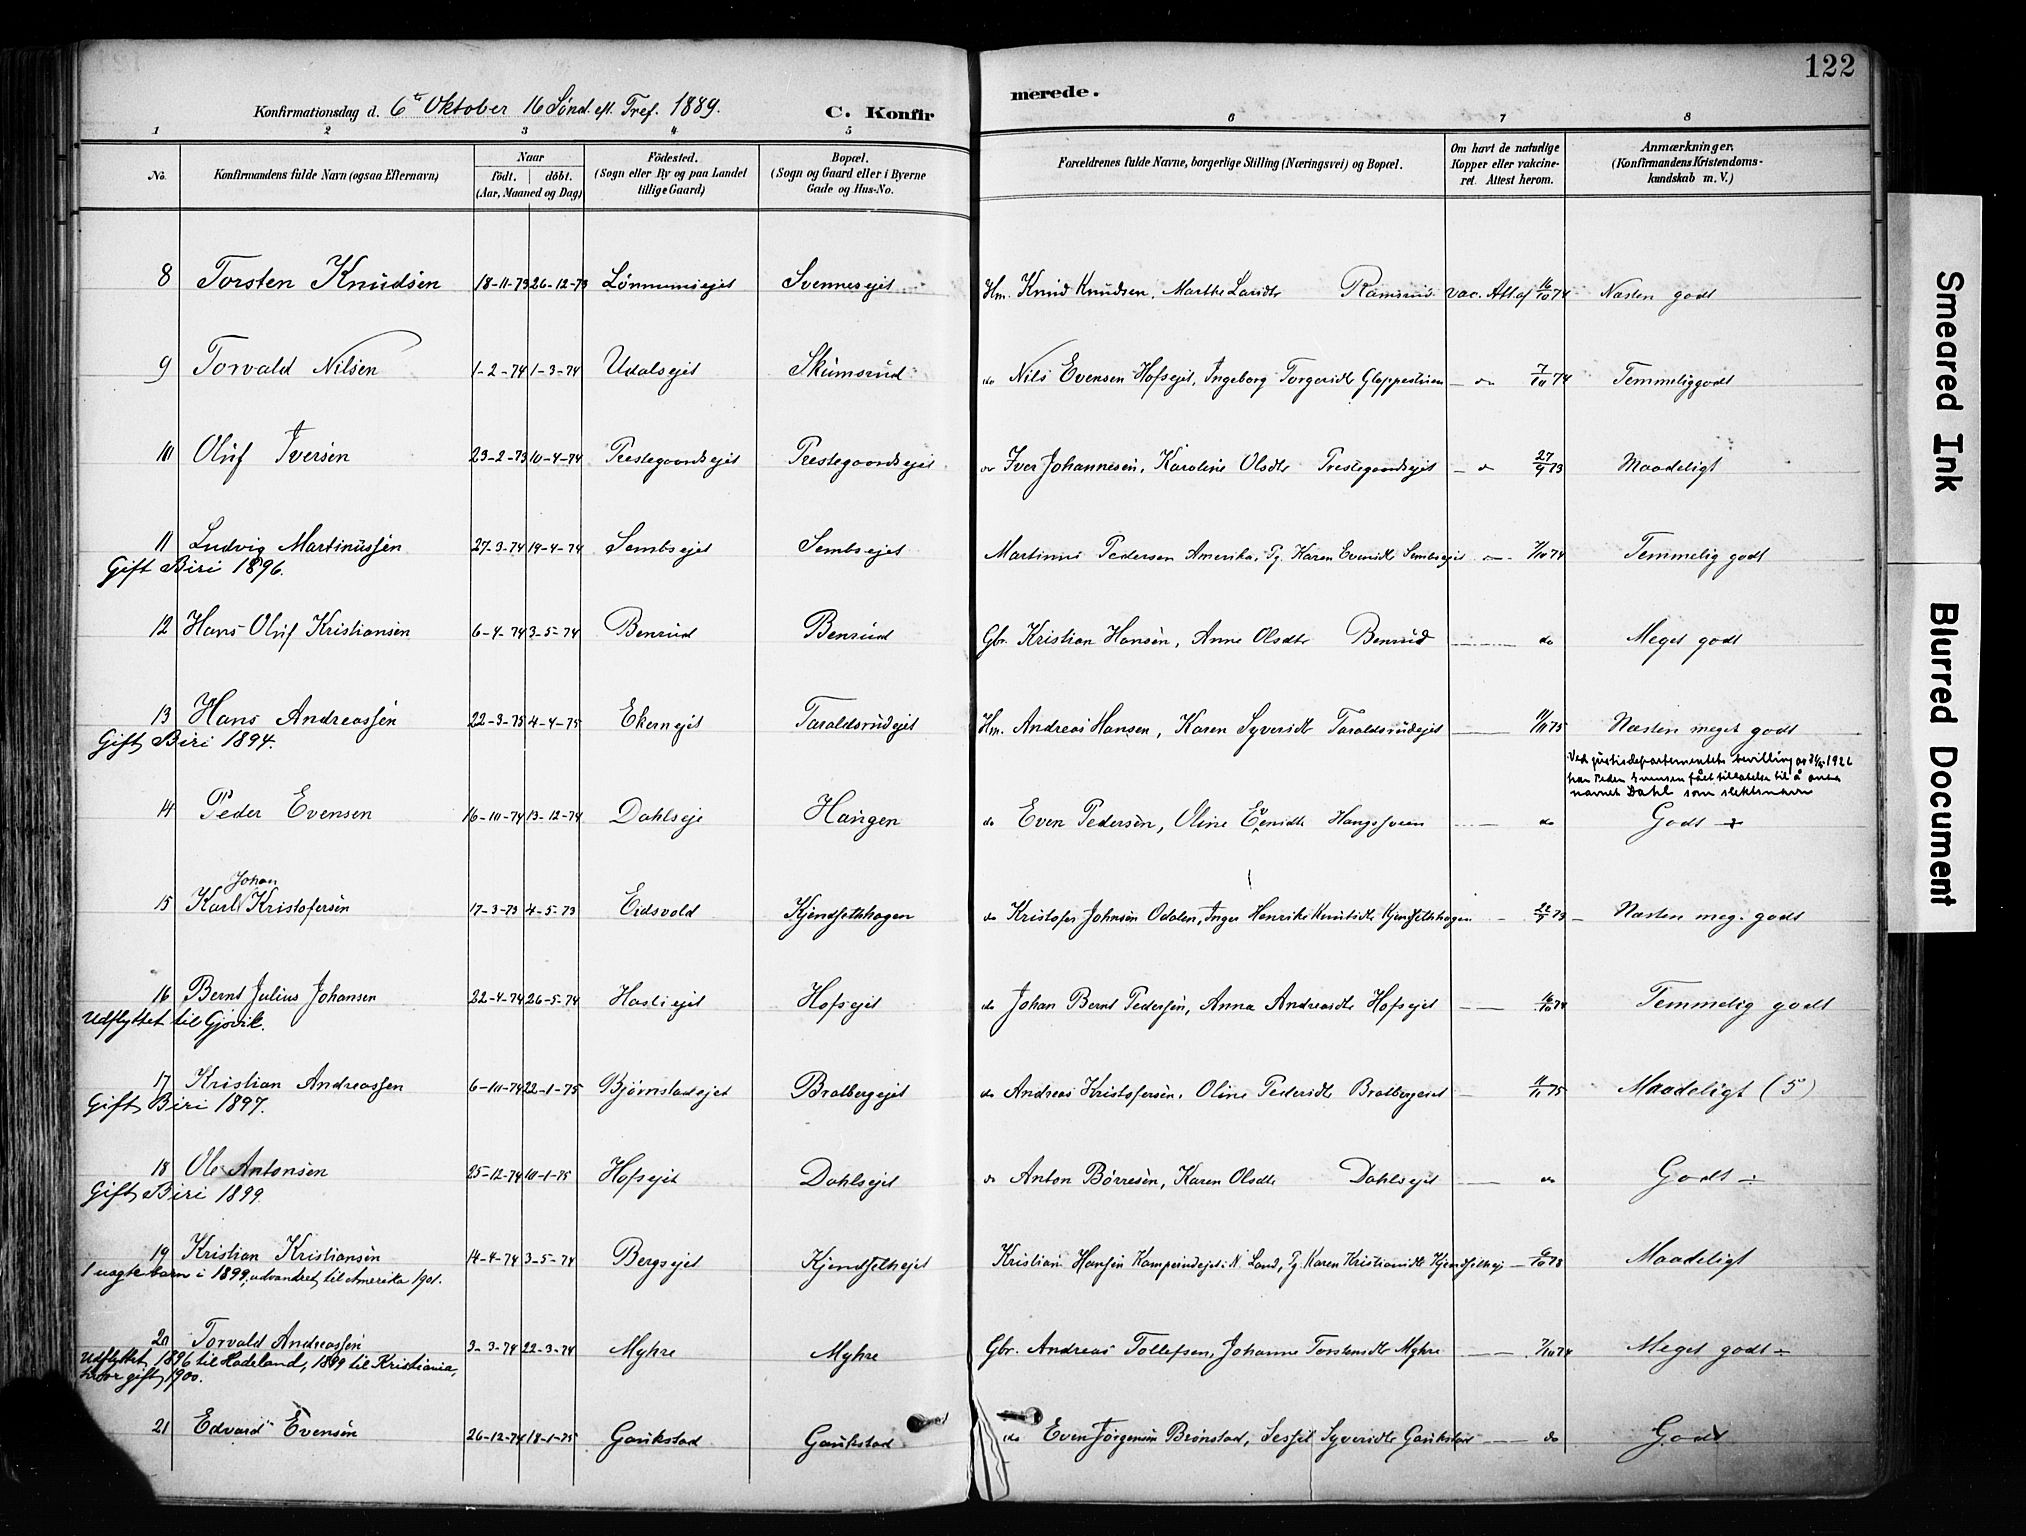 122
Konfirmationsdag d. 6te Oktober 16 Sønd. eft. Tref. 1889. C. Konfirmerede.
1 2 3 4 5 6 7 8
No. Konfirmandens fulde Navn (ogsaa Efternavn) Naar født. døbt. (Aar, Maaned og Dag) Födested. (Sogn eller By og paa Landet tillige Gaard) Bopæl. (Sogn og Gaard eller i Byerne Gade og Hus-No. Forældrenes fulde Navne, borgerlige Stilling (Næringsvei) og Bopæl. Om havt de naturlige Kopper eller vakcineret. Attest herom. Anmærkninger. (Konfirmandens Kristendomskundskab m. V.)
8 Torsten Knudsen 18-11-73 26-12-73 Lønnumsejet Svennesejet Hm. Knud Knudsen, Marthe Larsdtr Ramsrud vac. Att. af 16/10 74 Næsten godt
9 Torvald Nilsen 1-2-74 1-3-74 Udalsejet Skumsrud do Nils Evensen Hofsejet, Ingeborg Torgersdtr Gloppestuen — do 7/10 74 Temmelig godt
10 Oluf Iversen 23-2-73 10-4-74 Prestegaardsejet Prestegaardsejet do Iver Johannesen, Karoline Olsdtr Prestegaardsejet — do 27/9 73 Maadeligt
11 Ludvig Martinussen 27-3-74 19-4-74 Sembsejet Sembsejet Martinus Pedersen Amerika, Pg. Karen Evensdtr Sembsejet — 7/10 74 Temmelig godt
Gift Biri 1896.
12 Hans Oluf Kristiansen 6-4-74 3-5-74 Benrud Benrud Gbr. Kristian Hansen, Anne Olsdtr Benrud — do Meget godt
13 Hans Andreassen 22-3-75 4-4-75 Ekernejet Taraldsrudejet Hm. Andreas Hansen, Karen Syversdtr Taraldsrudejet — 11/11 75 Næsten meget godt
Gift Biri 1894.
Ved justisdepartementets bevilling av 1926
har Peder Evensen fået tillatelse til å anta
navnet Dahl som slektsnavn
14 Peder Evensen 16-10-74 13-12-74 Dahlseje Haugen do Even Pedersen, Oline Evensdtr Haugssveen — do Godt ÷
15 Karl Johan Kristofersen 17-3-73 4-5-73 Eidsvold Kjendsethhagen do Kristofer Johnsen Odalen, Inger Henrike Knutsdtr Kjendsethhagen — 22/9 73 — Næsten meg. godt
16 Bernt Julius Johansen 22-4-74 26-5-74 Hasliejet Hofsejet do Johan Bernt Pedersen, Anna Andreasdtr Hofsejet — 16/10 74 Temmelig godt
Udflyttet til Gjøvik.
17 Kristian Andreassen 6-10-74 22-1-75 Bjørnstadejet Bratbergejet do Andreas Kristofersen, Oline Pedersdtr Bratbergejet — 11/11 75 Maadeligt (5)
Gift Biri 1897.
18 Ole Antonsen 25-12-74 10-1-75 Hofsejet Dahlsejet do Anton Børresen, Karen Olsdtr Dahlsejet — do Godt ÷
Gift Biri 1899.
19 Kristian Kristiansen 14-4-74 3-5-74 Bergsejet Kjendsethejet Kristian Hansen Kamperudejet i N. Land, Pg. Karen Kristiansdtr Kjendsethej — 6/10 78 Maadeligt
1 uægte barn i 1899, udvandret til Amerika 1901.
20 Torvald Andreassen 3-3-74 22-3-74 Myhre Myhre Gbr. Andreas Tollefsen, Johanne Torstensdtr Myhre — 7/10 74 Meget godt ÷
Udflyttet 1896 til Hadeland, 1899 til Kristiania,
hvor gift 1900.
21 Edvard Evensen 26-12-74 18-1-75 Gaukstad Gaukstad do Even Jørgensen Brønstad, Sessel Syversdtr Gaukstad — do Godt
Smeared Ink
Blurred Document